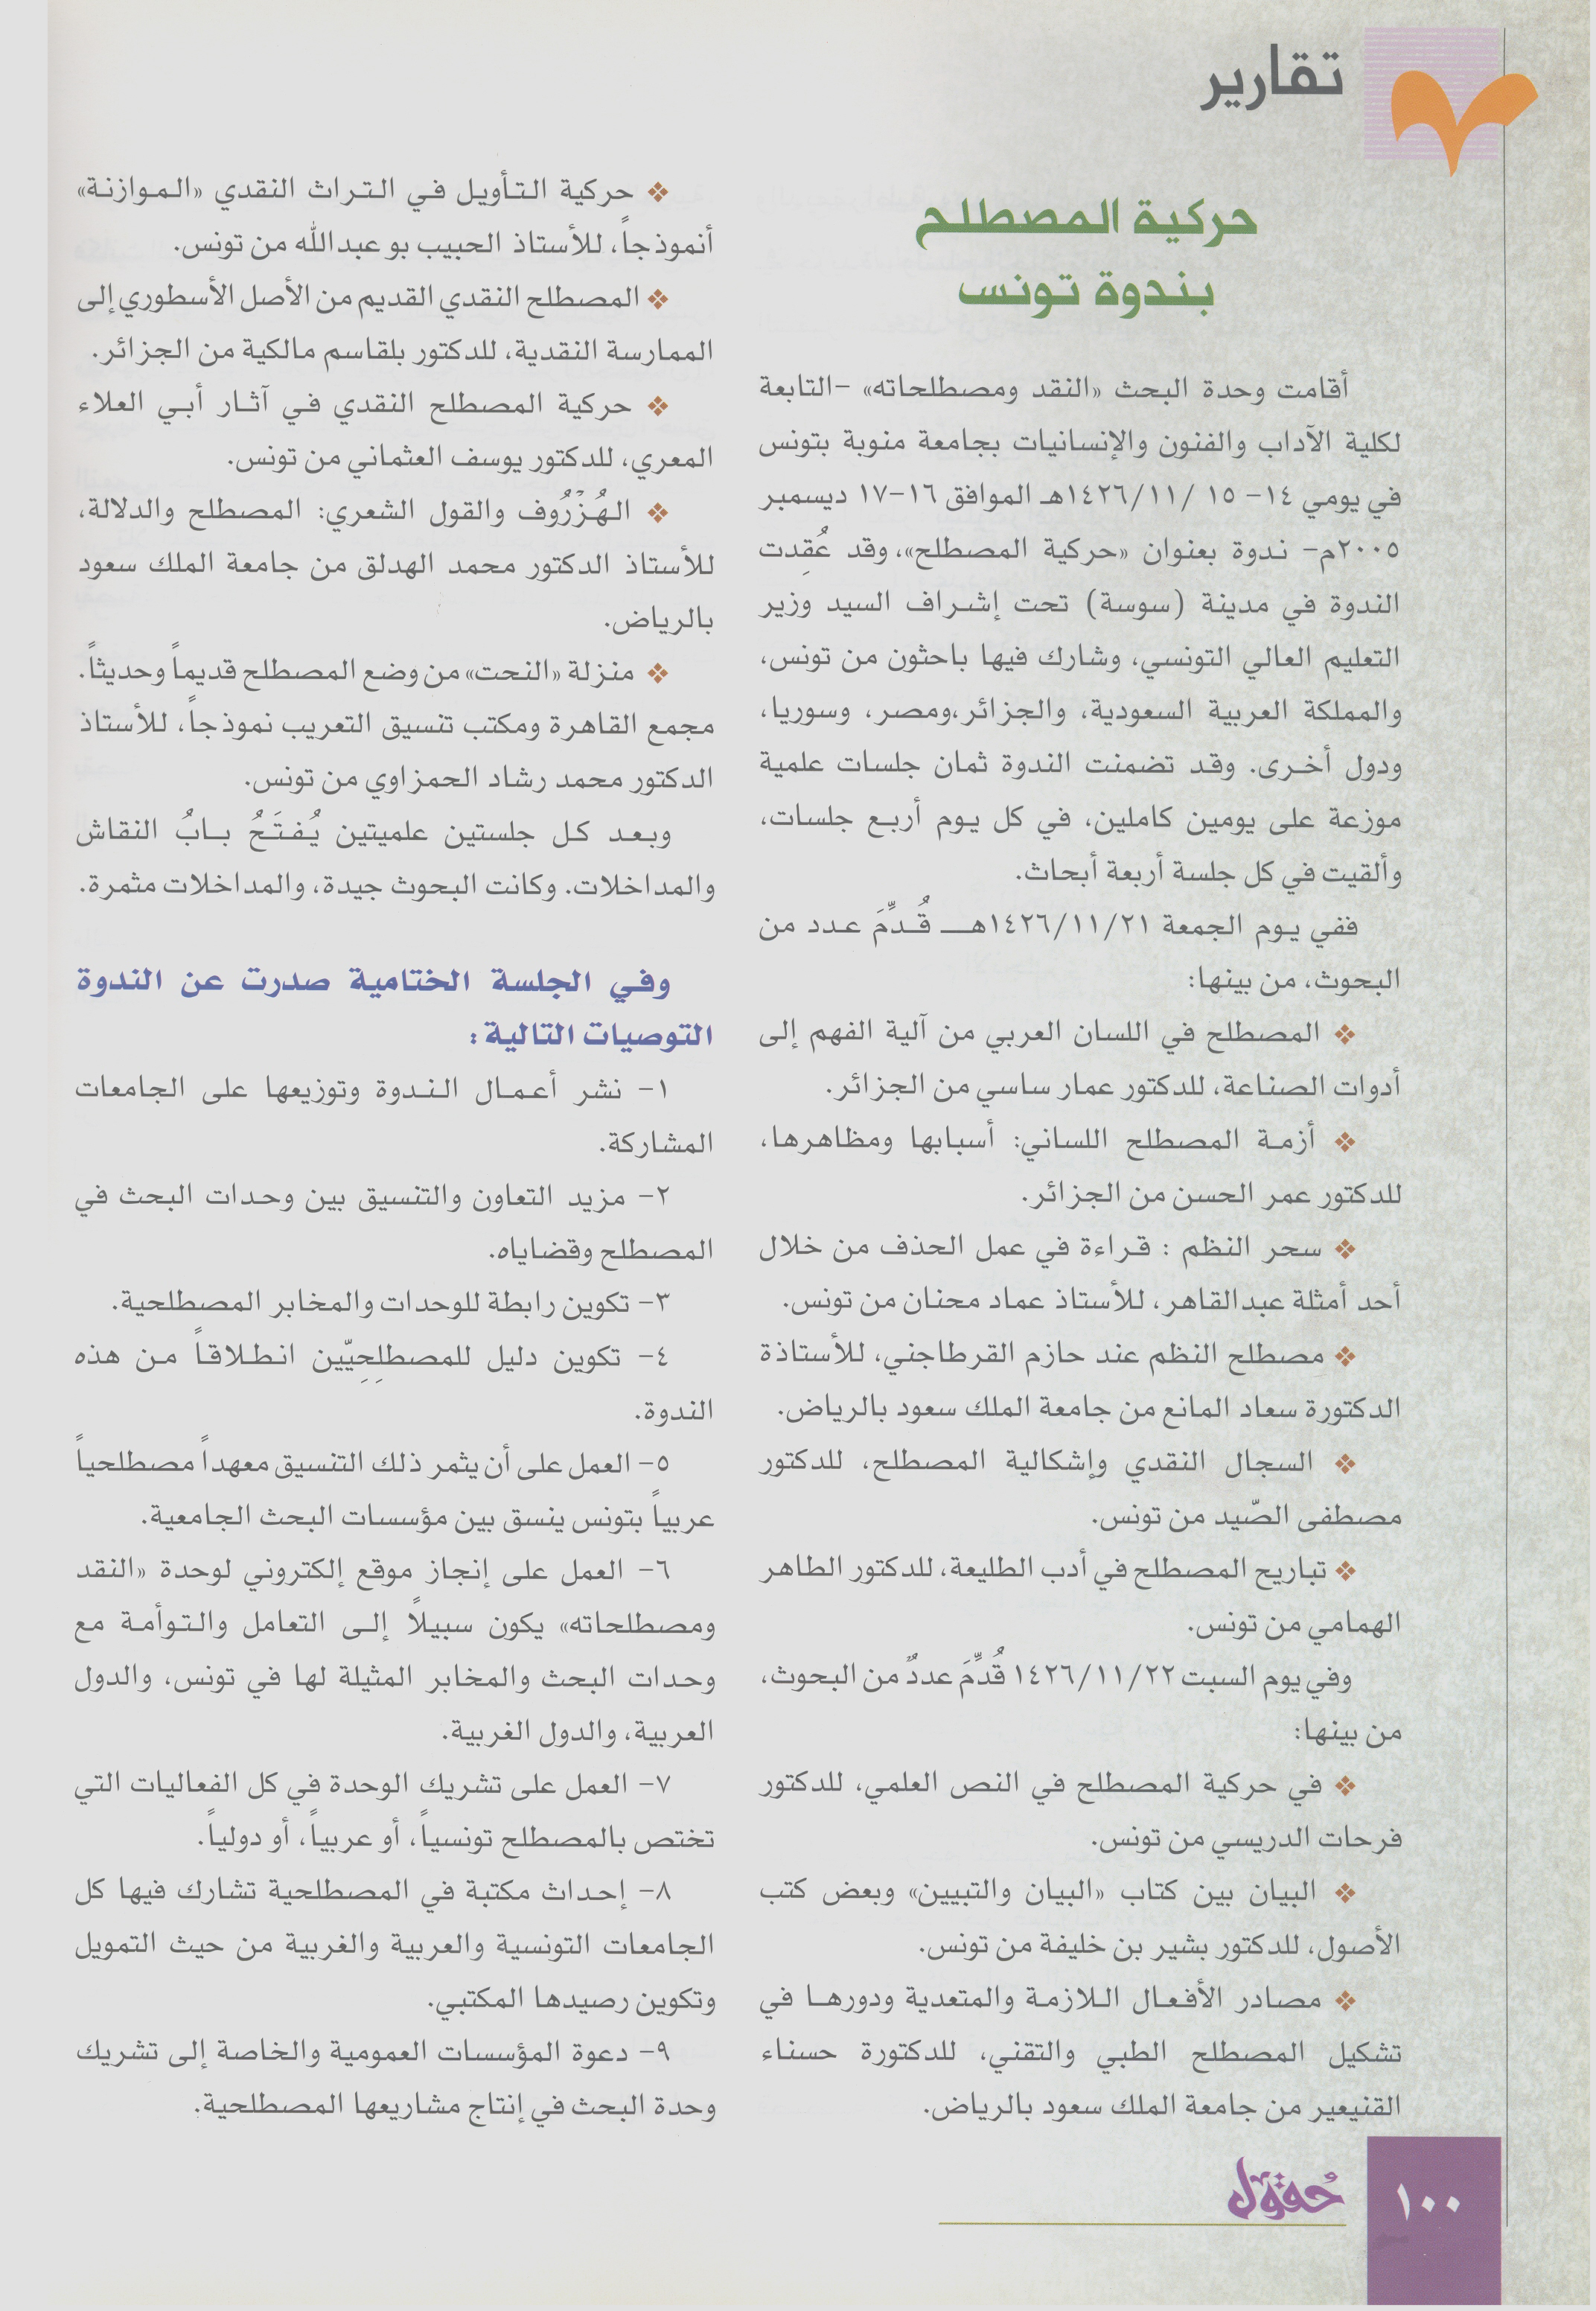 تقارير
حركية المصطلح
بندوة تونس
أقامت وحدة البحث «النقد ومصطلحاته» -التابعة
لكلية الآداب والفنون والإنسانيات بجامعة منوبة بتونس
في يومي ١٤- ١٥ /١٤٢٦/١١هـ الموافق ١٦-١٧ ديسمبر
٢٠٠٥م- ندوة بعنوان «حركية المصطلح»، وقد عُقِدت
الندوة في مدينة (سوسة) تحت إشراف السيد وزير
التعليم العالي التونسي، وشارك فيها باحثون من تونس،
والمملكة العربية السعودية، والجزائر،ومصر، وسوريا،
ودول أخرى. وقد تضمنت الندوة ثمان جلسات علمية
موزعة على يومين كاملين، في كل يوم أربع جلسات،
وألقيت في كل جلسة أربعة أبحاث.
ففي يوم الجمعة ١٤٢٦/١١/٢١هـ قُدِّمَ عدد من
البحوث، من بينها:
❖ المصطلح في اللسان العربي من آلية الفهم إلى
أدوات الصناعة، للدكتور عمار ساسي من الجزائر.
❖ أزمة المصطلح اللساني: أسبابها ومظاهرها،
للدكتور عمر الحسن من الجزائر.
❖ سحر النظم : قراءة في عمل الحذف من خلال
أحد أمثلة عبدالقاهر، للأستاذ عماد محنان من تونس.
❖ مصطلح النظم عند حازم القرطاجني، للأستاذة
الدكتورة سعاد المانع من جامعة الملك سعود بالرياض.
❖ السجال النقدي وإشكالية المصطلح، للدكتور
مصطفى الصّيد من تونس.
❖ تباريح المصطلح في أدب الطليعة، للدكتور الطاهر
الهمامي من تونس.
وفي يوم السبت ١٤٢٦/١١/٢٢ قُدِّمَ عددٌ من البحوث،
من بينها:
❖ في حركية المصطلح في النص العلمي، للدكتور
فرحات الدريسي من تونس.
❖ البيان بين كتاب «البيان والتبيين» وبعض كتب
الأصول، للدكتور بشير بن خليفة من تونس.
❖ مصادر الأفعال اللازمة والمتعدية ودورها في
تشكيل المصطلح الطبي والتقني، للدكتورة حسناء
القنيعير من جامعة الملك سعود بالرياض.
❖ حركية التأويل في التراث النقدي «الموازنة»
أنموذجاً، للأستاذ الحبيب بو عبدالله من تونس.
❖ المصطلح النقدي القديم من الأصل الأسطوري إلى
الممارسة النقدية، للدكتور بلقاسم مالكية من الجزائر.
❖ حركية المصطلح النقدي في آثار أبي العلاء
المعري، للدكتور يوسف العثماني من تونس.
❖ الهُزْرُوف والقول الشعري: المصطلح والدلالة،
للأستاذ الدكتور محمد الهدلق من جامعة الملك سعود
بالرياض.
❖ منزلة «النحت» من وضع المصطلح قديماً وحديثاً.
مجمع القاهرة ومكتب تنسيق التعريب نموذجاً، للأستاذ
الدكتور محمد رشاد الحمزاوي من تونس.
وبعد كل جلستين علميتين يُفتَحُ بابُ النقاش
والمداخلات. وكانت البحوث جيدة، والمداخلات مثمرة.
وفي الجلسة الختامية صدرت عن الندوة
التوصيات التالية:
١- نشر أعمال الندوة وتوزيعها على الجامعات
المشاركة.
٢- مزيد التعاون والتنسيق بين وحدات البحث في
المصطلح وقضاياه.
٣- تكوين رابطة للوحدات والمخابر المصطلحية.
٤- تكوين دليل للمصطلِحِيّين انطلاقاً من هذه
الندوة.
٥- العمل على أن يثمر ذلك التنسيق معهداً مصطلحياً
عربياً بتونس ينسق بين مؤسسات البحث الجامعية.
٦- العمل على إنجاز موقع إلكتروني لوحدة «النقد
ومصطلحاته» يكون سبيلاً إلى التعامل والتوأمة مع
وحدات البحث والمخابر المثيلة لها في تونس، والدول
العربية، والدول الغربية.
٧- العمل على تشريك الوحدة في كل الفعاليات التي
تختص بالمصطلح تونسياً، أو عربياً، أو دولياً.
٨- إحداث مكتبة في المصطلحية تشارك فيها كل
الجامعات التونسية والعربية والغربية من حيث التمويل
وتكوين رصيدها المكتبي.
٩- دعوة المؤسسات العمومية والخاصة إلى تشريك
وحدة البحث في إنتاج مشاريعها المصطلحية.
حُقول
١٠٠